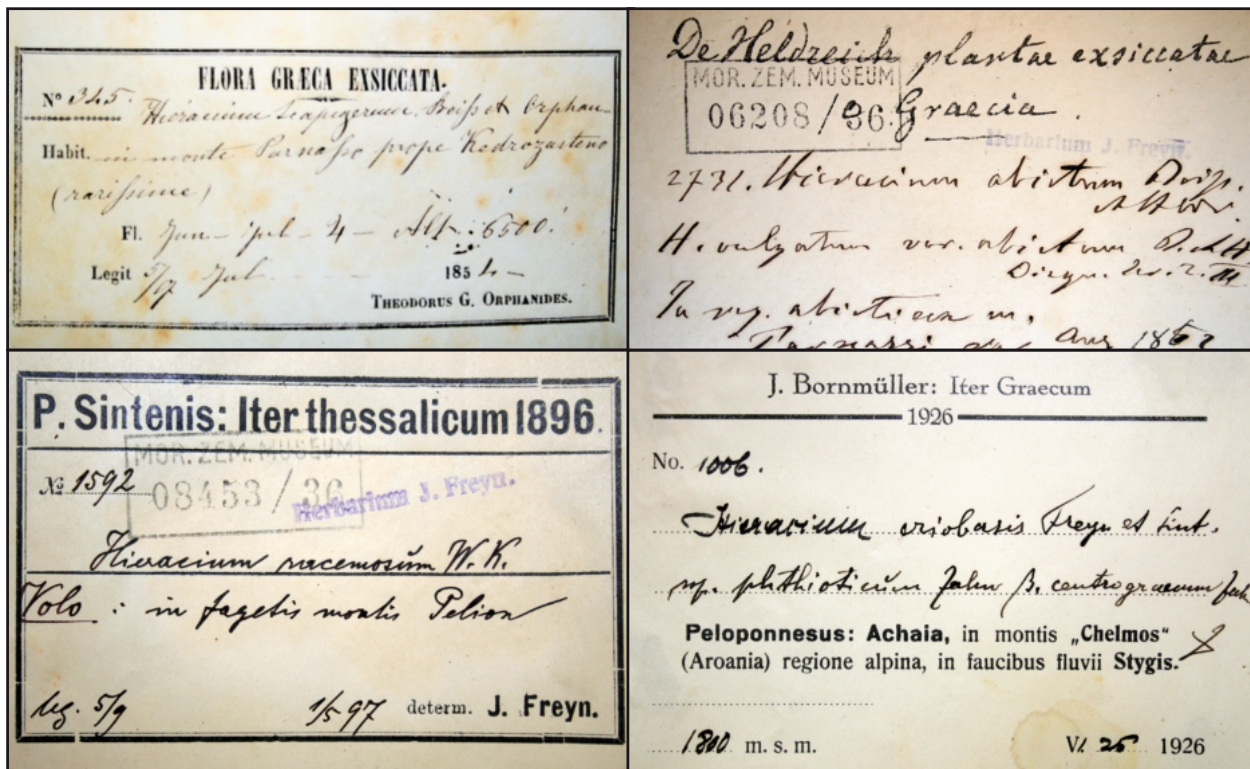 FLORA GRÆCA EXSICCATA.
Nº 345. Hieracium scapigerum Boiss et Orphan
Habit. in monte Parnasso prope
(rarissime)
Fl. Jun – jul – 4 – Alt. 6500'
Legit 5/17 Jul 1854 –
THEODORUS G. ORPHANIDES.
De Heldreich plantae exsiccatae
MOR. ZEM. MUSEUM
06208/36
Graecia.
Herbarium J. Freyn.
2731. Hieracium
H. vulgatum var.
In reg. m.
Parnassi Aug
P. Sintenis: Iter thessalicum 1896.
MOR. ZEM. MUSEUM
№ 1592
08453/36
Herbarium J. Freyn.
Hieracium racemosum W.K.
Volo : in fagetis montis Pelion
leg. 5/9 1/5 97 determ. J. Freyn.
J. Bornmüller: Iter Graecum
1926
No. 1006.
Hieracium eriobasis Freyn et Sint.
sp. phthioticum Zahn β. centrograecum
Peloponnesus: Achaia, in montis „Chelmos“
(Aroania) regione alpina, in faucibus fluvii Stygis.
1800 m. s. m. VI 25 1926